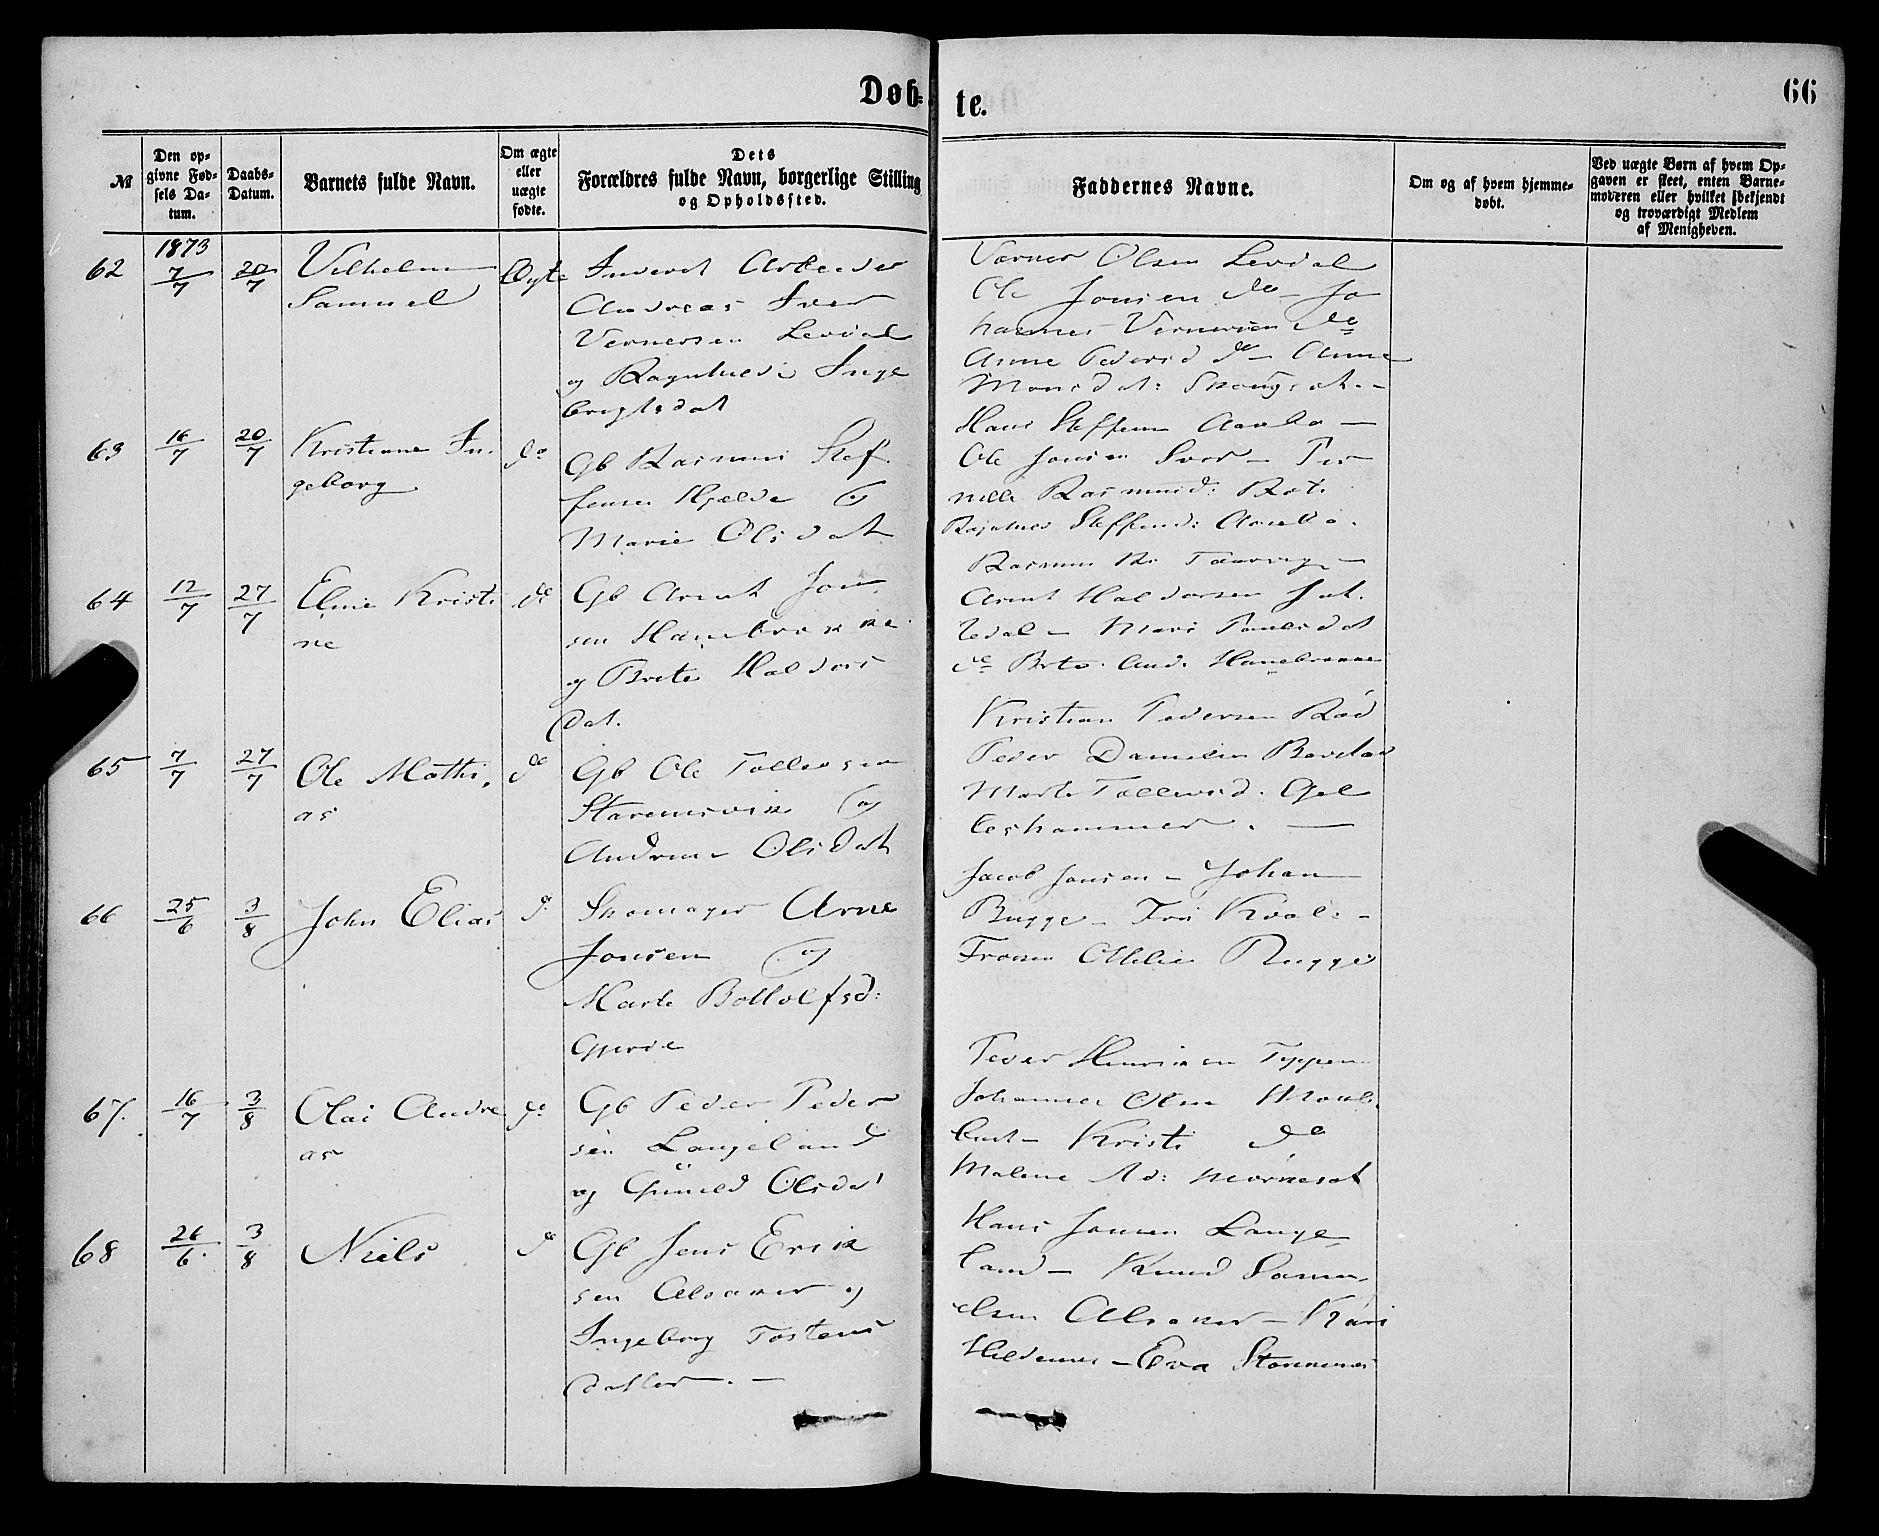 Døb-
te.
66
№
Den op-
givne Fød-
sels Da-
tum.
Daabs-
Datum.
Barnets fulde Navn.
Om ægte
eller
uægte
fødte.
Dets
Forældres fulde Navn, borgerlige Stilling
og Opholdssted.
Faddernes Navne.
Om og af hvem hjemme-
døbt.
Ved uægte Børn af hvem Op-
gaven er skeet, enten Barne-
moderen eller hvilket bekjendt
og troværdigt Medlem
af Menigheden.
1873
62
7/7
20/7
Vilhelm
Samuel
Ægte
Inderst Arbeider
Andreas Iver
Vernersen Levdal
og Ragnhild Inge
brigtsdat
Verner Olsen Levdal
Ole Jonsen do - Jo
hannes Vernersen do
Anne Pedersd do - Anne
Monsdat:
63
16/7
20/7
Kristiane In-
geborg
do
Gb Rasmus Stef-
fensen Hjelde og
Marie Olsdat
Hans Steffensen
Ole Jonsen - Per
nille Rasmusd:
Steffensd:
Rasmus
64
12/7
27/7
Eline Kristi
ne
do
Gb Arnt Jon
sen Hanebrekke
og Brite Haldors
dat.
Arnt Haldorsen
dal - Mari Paulsdat
do Brte And: Hanebrekke
65
7/7
27/7
Ole Mathi-
as
do
Gb Ole Tollevsen
Staremsvik og
Andrine Olsdat
Kristian Pedersen Rød
Peder Danielsen
Marte Tollevsd. Gjel
leshammer. -
66
25/6
3/8
John Elias
do
Skomager Arne
Jonsen og
Marte Bottolfsd:
Gjerde
Jacob Jonsen - Johan
Bugge - Fru Kvale -
Frøken Othelie Bugge
67.
16/7
3/8
Olai Andre
as
do
Gb Peder Peder
sen Langeland
og Gunild Olsdat
Peder Henriksen
Johannes Olsen
Kristi do
Malene
68
26/6.
3/8
Niels
do
Gb Jens Erik
sen Alsaker og
Ingeborg Tostens
datter. -
Hans Jonsen Lange
land - Knud Samu-
elsen Alsaker - Kari
- Eva